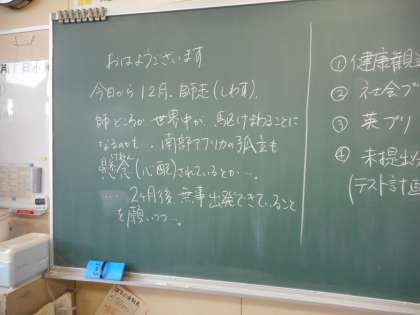 おはようございます
今日から12月、師走(しわす)。
師どころか世界中が、駆けまわることに
なるのかも…。南部アフリカの孤立も
懸念(心配)されているとか…。
けねん
…、2ヶ月後、無事出発できていること
を願いつつ…。
① 健康観
② 社会プ
③ 英プリ
④ 未提出
(テスト計画